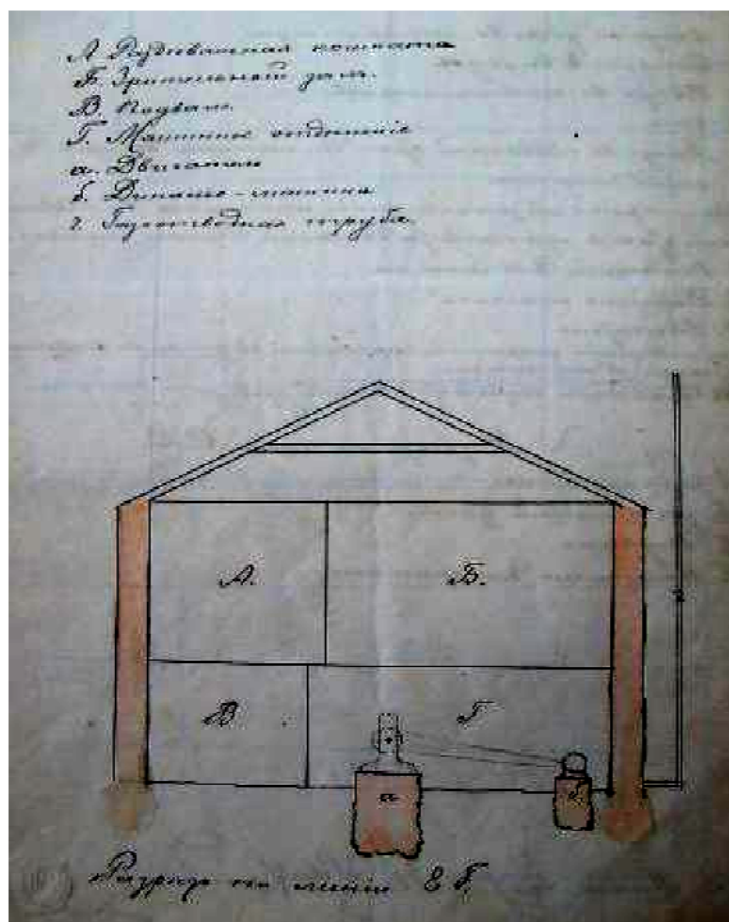 А. Раздевальная комната
Б. Зрительный зал.
В. Подвал.
Г. Машинное отделенiе
а. Двигатель
б. Динамо-машина
г. Газоотводная труба.
А.
Б.
В
Г
а
б
г
Разрезъ по линiи